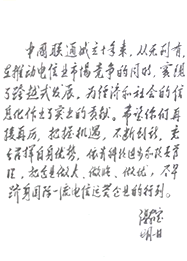 中国联通成立十年来，从无到有，
在推动电信业市场竞争的同时，实现
了跨越式发展，为经济和社会的信
息化作出了突出的贡献。希望你们再
接再厉，把握机遇，不断创新，充
分发挥自身优势，依靠科技进步和改善管
理，把企业做大、做强、做优，尽早
跻身国际一流电信运营企业的行列。